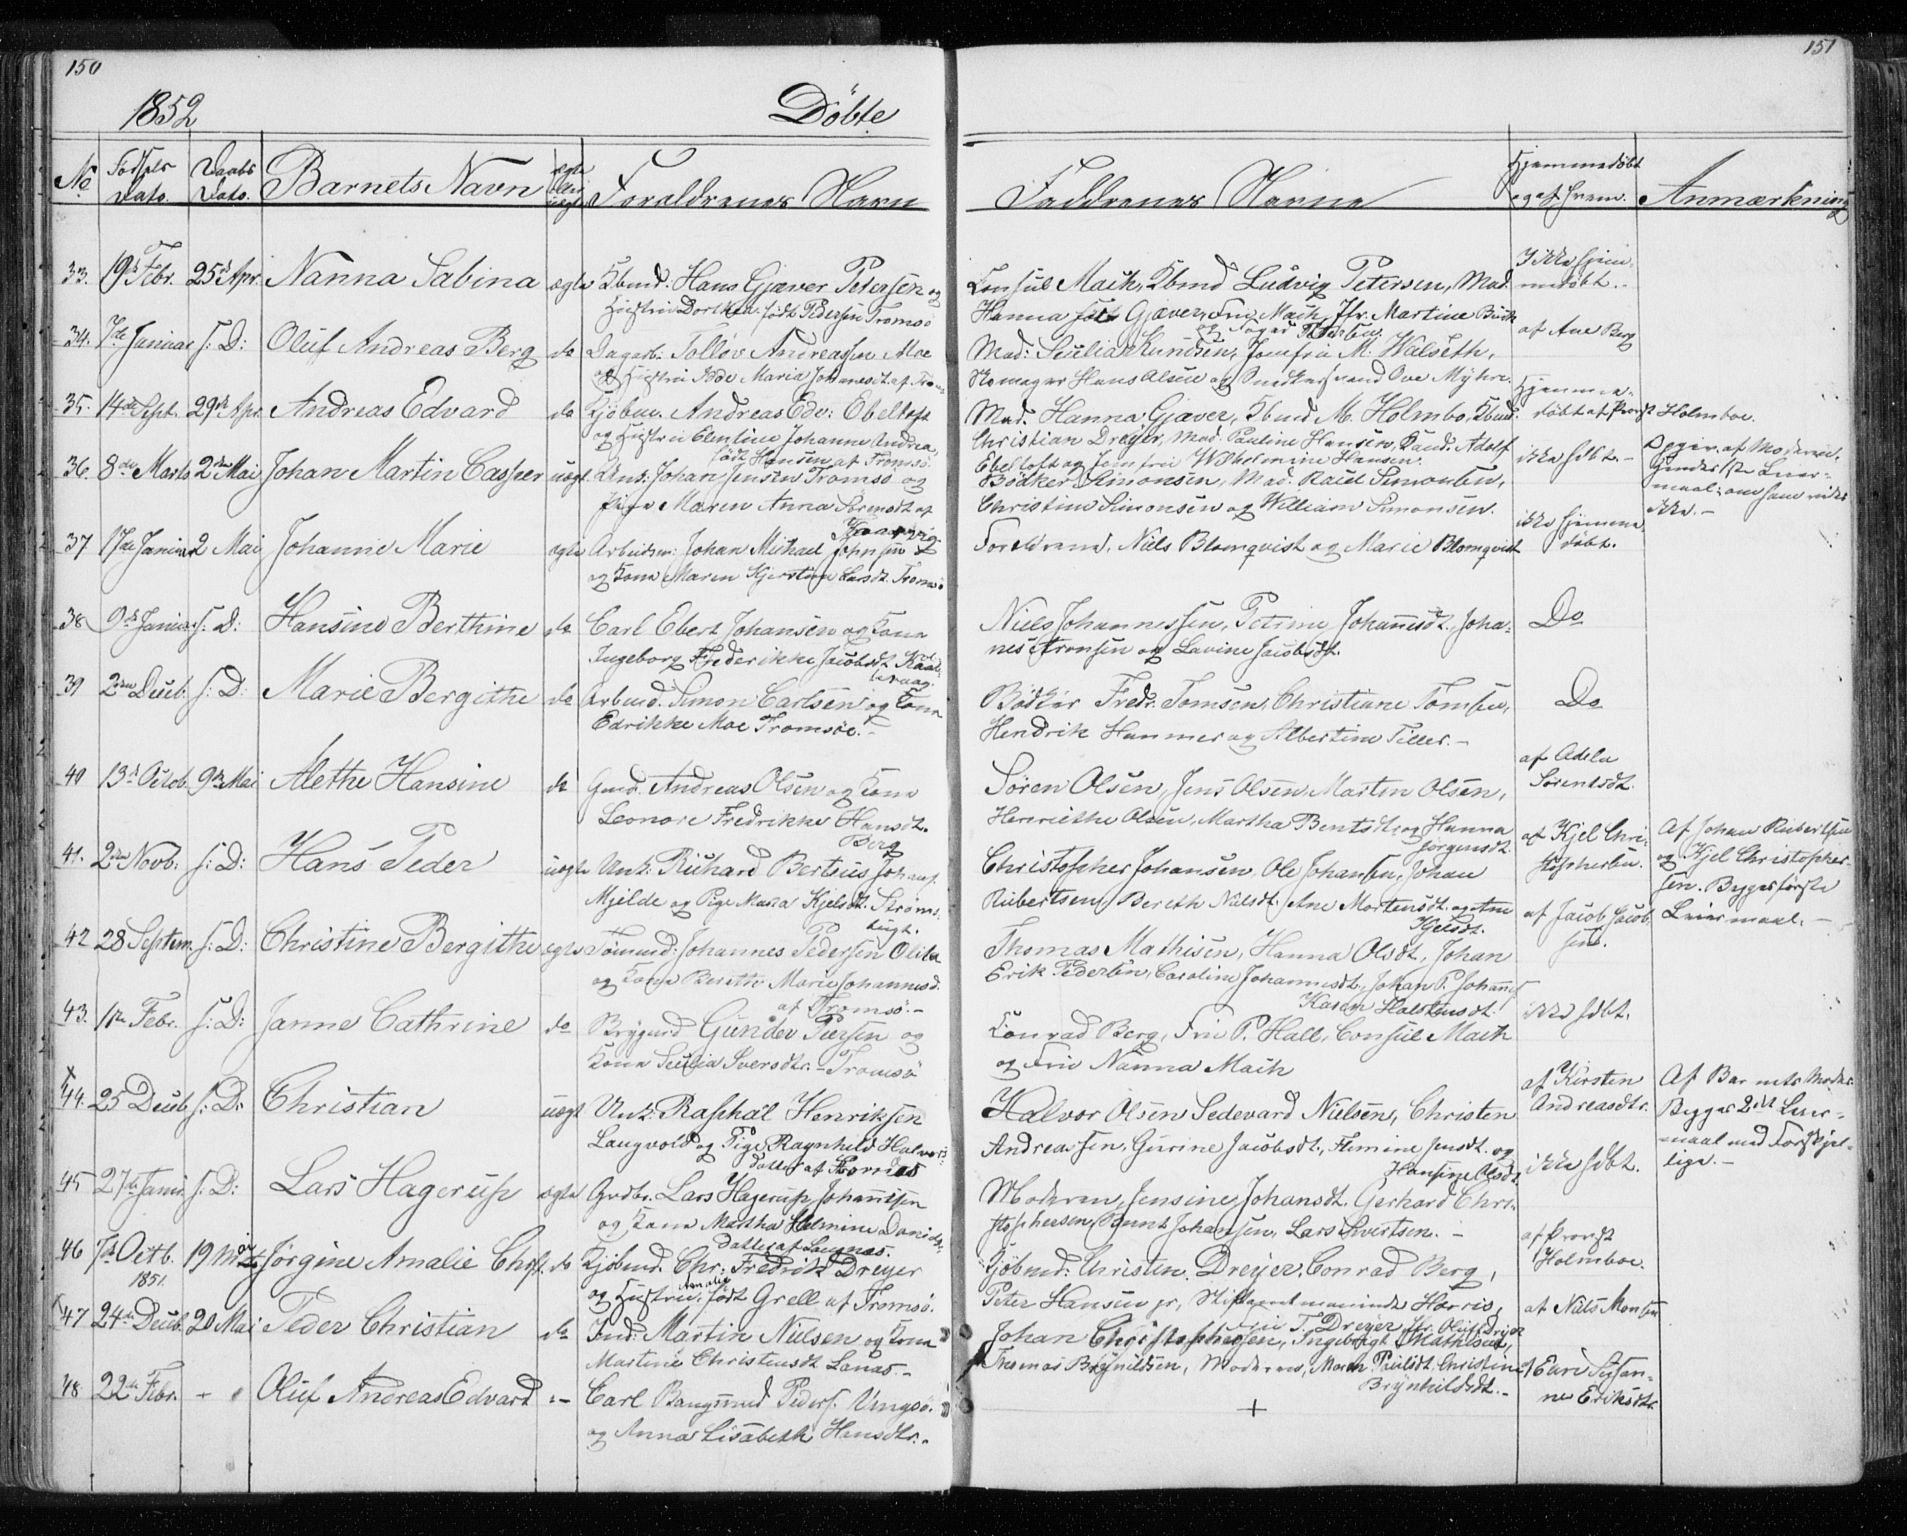 150
151
1852 Döbte
No Födsels Dato. Daabs Dato. Barnets Navn ægte eller uægte Foreldrenes Navn
Faddrenes Navne Hjemmedöbt og af hvem. Anmærkning
33. 19de Febr. 25de Apr. Nanna Sabina ægte Kbmd. Hans Gjæver Petersen og
Hustru Dorthea født Pedersen Tromsö
Consul Mack, Kbmd Ludvig Petersen, Mad.
Hanna født Gjæver, Fru Mack, Jfr. Martine Buck
Ikke hjem-
medöbt.
34. 7de Januar s: D: Oluf Andreas Berg do Dagarb. Tolløv Andreassen Moe
og Hustru Maria Johannesdt. af Troms.
Mad: Secilia Knudsen, Jomfru M. Walseth,
Skomager Hans Olsen og Snedkersvend Ove Myhre.
af Ane Berg
35. 14de Sept. 29de Apr. Andreas Edvard do Kjöbm. Andreas Edv: Ebeltoft
og Hustru Clentine Johanne Andrea,
född Hansen af Tromsö.
Mad. Hanna Gjæver, Kbmd. M. Holmbo, Kbmd.
Christian Dreyer, Mad. Pauline Hansen, Cand. Adolf
Ebeltoft og Jomfru Wilhelmine Hansen.
Hjemme-
döbt af Provst Holmboe.
36. 8de Marts 2den Mai Johan Martin Casper uægt. Unk: Johan Jensen Tromsö og
Pige Maren Anna
Bödker Simonsen, Mad. Raiel Simonsen,
Christine Simonsen og William Simonsen.
ikke hdbt.-
Opgiv. af Moderen.
ikke.-
37 17de Januar 2 Mai Johanne Marie ægte Arbeidsm: Johan Michael Johnsen
og Kone Maren Kjerstine Larsdt. Tromsö
Foreldrene, Niels Blomqvist og Marie Blomqvist
ikke hjemme
döbt.
38 9de Januar s: D: Hansine Berthine do Carl Ebert Johansen og Kone
Ingeborg Frederikke Jacobsdt.
Niels Johannessen, Petrine Johannesdt., Joha-
nes Aronsen og Lavine Jacobsdt.
Do
39 2den Decb. s: D: Marie Bergithe do Arbmd. Simon Carlsen og Kone
Edrikke Moe Tromsöe.-
Bödker Fredr. Tomsen, Christiane Tomsen,
Hendrik Hammer og Albertine Tiller.-
Do
40 13de Octob. 9de Mai Alethe Hansine do Gmd. Andreas Olsen og Kone
Leonore Fredrikke Hansdt.
Berg
Sören Olsen, Jens Olsen, Morten Olsen,
Henriethe Olsen, Martha Bentsdt. og Hanna
Jörgensdt.
af Adela
Sörensdt.
41. 2den Novb. s: D: Hans Peder uægte Unk: Richard Bertheus Johans.
Mjelde og Pige Maria Kjelsdt. Ströms-
Christopher Johansen, Ole Johansen, Johan
Rubertsen, Bereth Nielsdt. Ane Mortensdt. og Ane
Kjelsdt.
af Kjel Chri-
stophersen.
Af Johan Rubertsen
og Kjel Christopher-
sen. Begges förste
Leiermaal.-
42 28 Septem. s: D: Christine Bergithe ægte Tömmd: Johannes Pedersen
og Kone Berethe Marie Johannesd.
af Tromsö.-
Thomas Mathisen, Hanna Olsdt., Johan
Erik Pedersen, Caroline Johannesdt., Johan P. Johans.
Karen Halstensdt.
af Jacob Jacob-
sen.
43. 11te Febr. s: D: Janne Cathrine do Brygmd Gunder Persen og
Kone Secilia Sversdtr. Tromsö
Conrad Berg, Fru P. Hall, Consul Mack
og Fru Nanna Mack
ikke hdbt.
44. 25 Decb. s: D: Christian uægt Unk: Raphäl Henriksen
Langvold og Pige Ragnhild Halvors-
datter af
Halvor Olsen Sedevard Nielsen, Christen
Andreassen, Gurine Jacobsdt., Flemine Jensdt. og
Hansine Olsdt.
af Kirsten
Andreasdtr.
Af Barnets Moder.
Begges 2det Leier-
maal med Forskjel-
lige.-
45 27de Janu. s: D: Lars Hagerup ægte Grdbr. Lars Hagerup Johannesen
og Kone Martha Helmine Daniels-
datter af
Moderen, Jensine Johansdt. Gerhard Chri-
stophersen, Bernt Johansen, Lars Sivertsen.-
ikke hdbt.
46 7de Octb. 1851. 19 Mai Jørgine Amalie Chrst. do Kjöbmd. Chr: Fredrik Dreyer
og Hustru, Amalie født Grell af Tromsö.
Kjöbmd: Christen Dreyer, Conrad Berg,
Peter Hansen jr, Stiftamtmandinde Harris,
Fru T. Dreyer
af Provst
Holmboe.
47 24de Decb. 20 Mai Peder Christian do Indr: Martin Nielsen og Kone
Martine Christensdt
Johan Christophersen, Ingeborg
Thomas Brynildsen, Moderen, Maren Paulsdt. Christine
Brynhildsdt.-
af Niels Monsen
48 22de Febr. - " Oluf Andreas Edvard :- Carl Bangsund Peders. Ringsö.
og Anna Lisabeth Hansdtr.-
+
ne Eriksdtr.